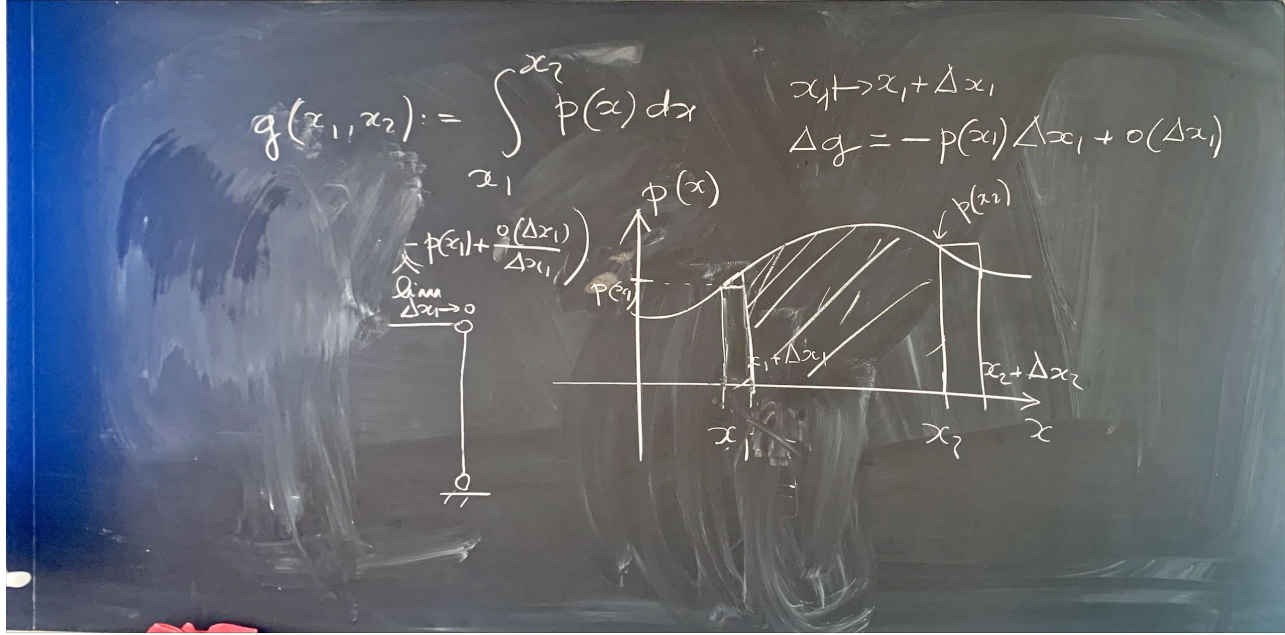 g(x₁, x₂) := ∫_{x₁}^{x₂} p(x) dx
x₁ ↦ x₁ + Δx₁
Δg = - p(x₁) Δx₁ + o(Δx₁)
p(x)
p(x₂)
- p(x₁) + o(Δx₁)/Δx₁ )
lim Δx₁→0
p(x₁)
x₁ + Δx₁
x₂ + Δx₂
x₁
x₂
x